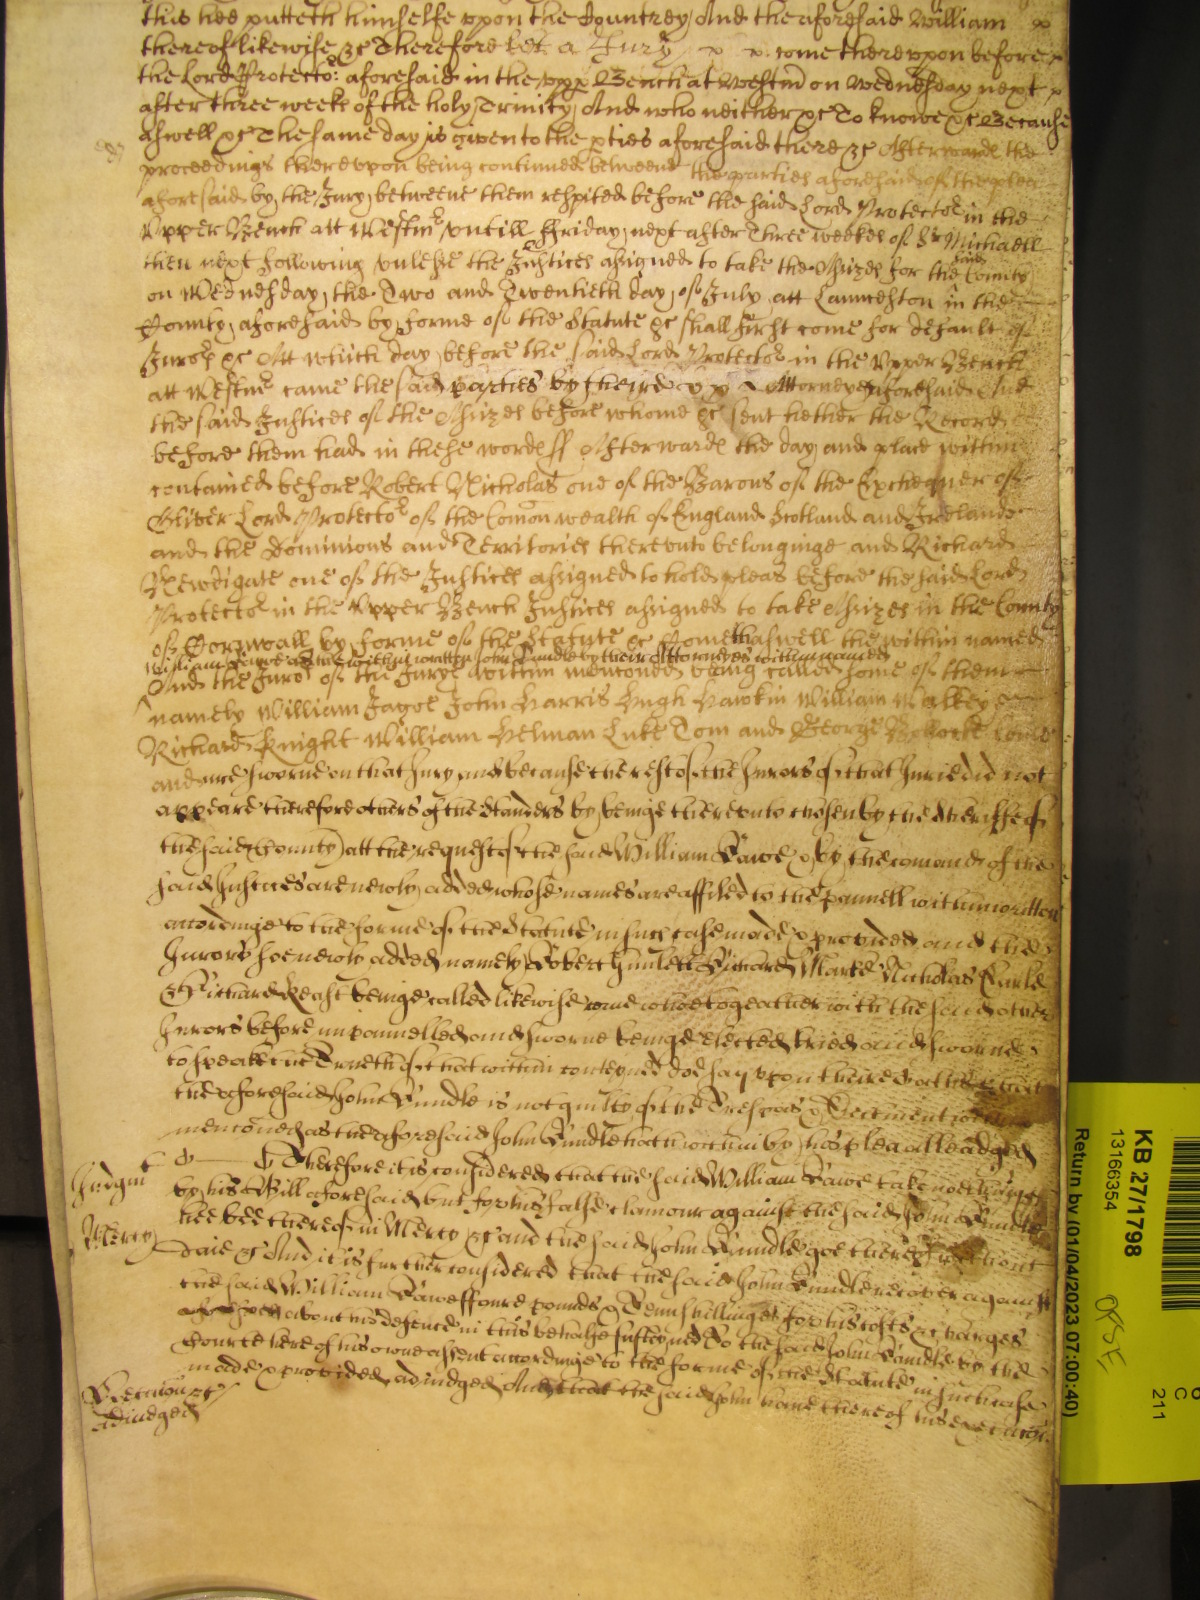 this hee putteth himselfe vppon the Countrey And the aforesaid William x
thereof likewise &c Therefore let a Jury x x come therevpon before x
the Lord Protector aforesaid in the vpp Bench at Westm on Wednesday next x
after three weeks of the holy Trinity And who neither &c To knowe &c Because
aswell &c The same day is given to the pties aforesaid there &c Afterwards the
proceedings therevpon being continued betweene the parties aforesaid of the plea
aforesaid by the Jury betweene them respited before the said Lord Protector in the
Vpper Bench att Westmr vntill Ffriday next after Three weekes of St Michaell
then next following vnlesse the Justices assigned to take the Assizes for the County
on Wednesday the Two and Twentieth day of July att Launceston in the
County aforesaid by forme of the Statute &c shall first come for default of
Jurors &c Att which day before the said Lord Protector in the Vpper Bench
att Westmr came the said parties by theire x x Attorneyes aforesaid And
the said Justices of the Assizes before whome &c sent hether the Record
before them had in these words ss Afterwards the day and place within
contained before Robert Nicholas one of the Barons of the Exchequer of
Oliver Lord Protector of the Comon wealth of England Scotland and Ireland
and the Dominions and Territories therevnto belonginge and Richard
Newdigate one of the Justices assigned to hold pleas before the said Lord
Protector in the Vpper Bench Justices assigned to take Assizes in the County
of Cornwall by forme of the Statute &c Come th aswell the within named
William Rawe as the within written John Rundle by their Attorneyes within named
And the Juros of the Jury within mentoned being called some of them
namely William Jagoe John Harris Hugh Hawkin William Walkey
Richard Knight William Helman Luke Tom and George come
and are sworne on that Jury and because the rest of the Jurors of that Jurie did not
appeare therefore others of the standers by beinge therevnto chosen by the Sheriffe of
the said County att the request of the said William Rawe & by the comand of the
said Justices are newly added whose names are affiled to the pannell within written
accordinge to the forme of the Statute in such case made & provided and the
Jurors soe newly added namely Robert Richard Marke Nicholas Earle
& Richard Keast beinge called likewise come whoe togeather with the said other
Jurors before impannelled and sworne beinge elected tried and sworne
to speake the Trueth of that within conteyned doe say vpon theire oathes that
the aforesaid John Rundle is not guilty of the Trespas & Eiectment within
mentoned as the aforesaid John Rundle hath within by his plea alleadged
&c Therefore it is considered that the said William Rawe take nothinge
Judgmt
by his Bill aforesaid but for his false clamour against the said John Rundle
hee bee thereof in Mercy &c and the said John Rundle goe thereof without
Mercy
daie &c And it is further considered that the said John Rundle recover against
the said William Rawe ffoure pounds & Tenn shillinges for his costs & charges
about his defence in this behalfe susteyned To the said John Rundle by the
Court here of his owne assent accordinge to the forme of the Statute in such case
made & provided adiudged And that the said John have thereof his execucon
Execucon &c
adiudged
KB 27/1798
13166354
Return by (01/04/2023 07:00:40)
C
211